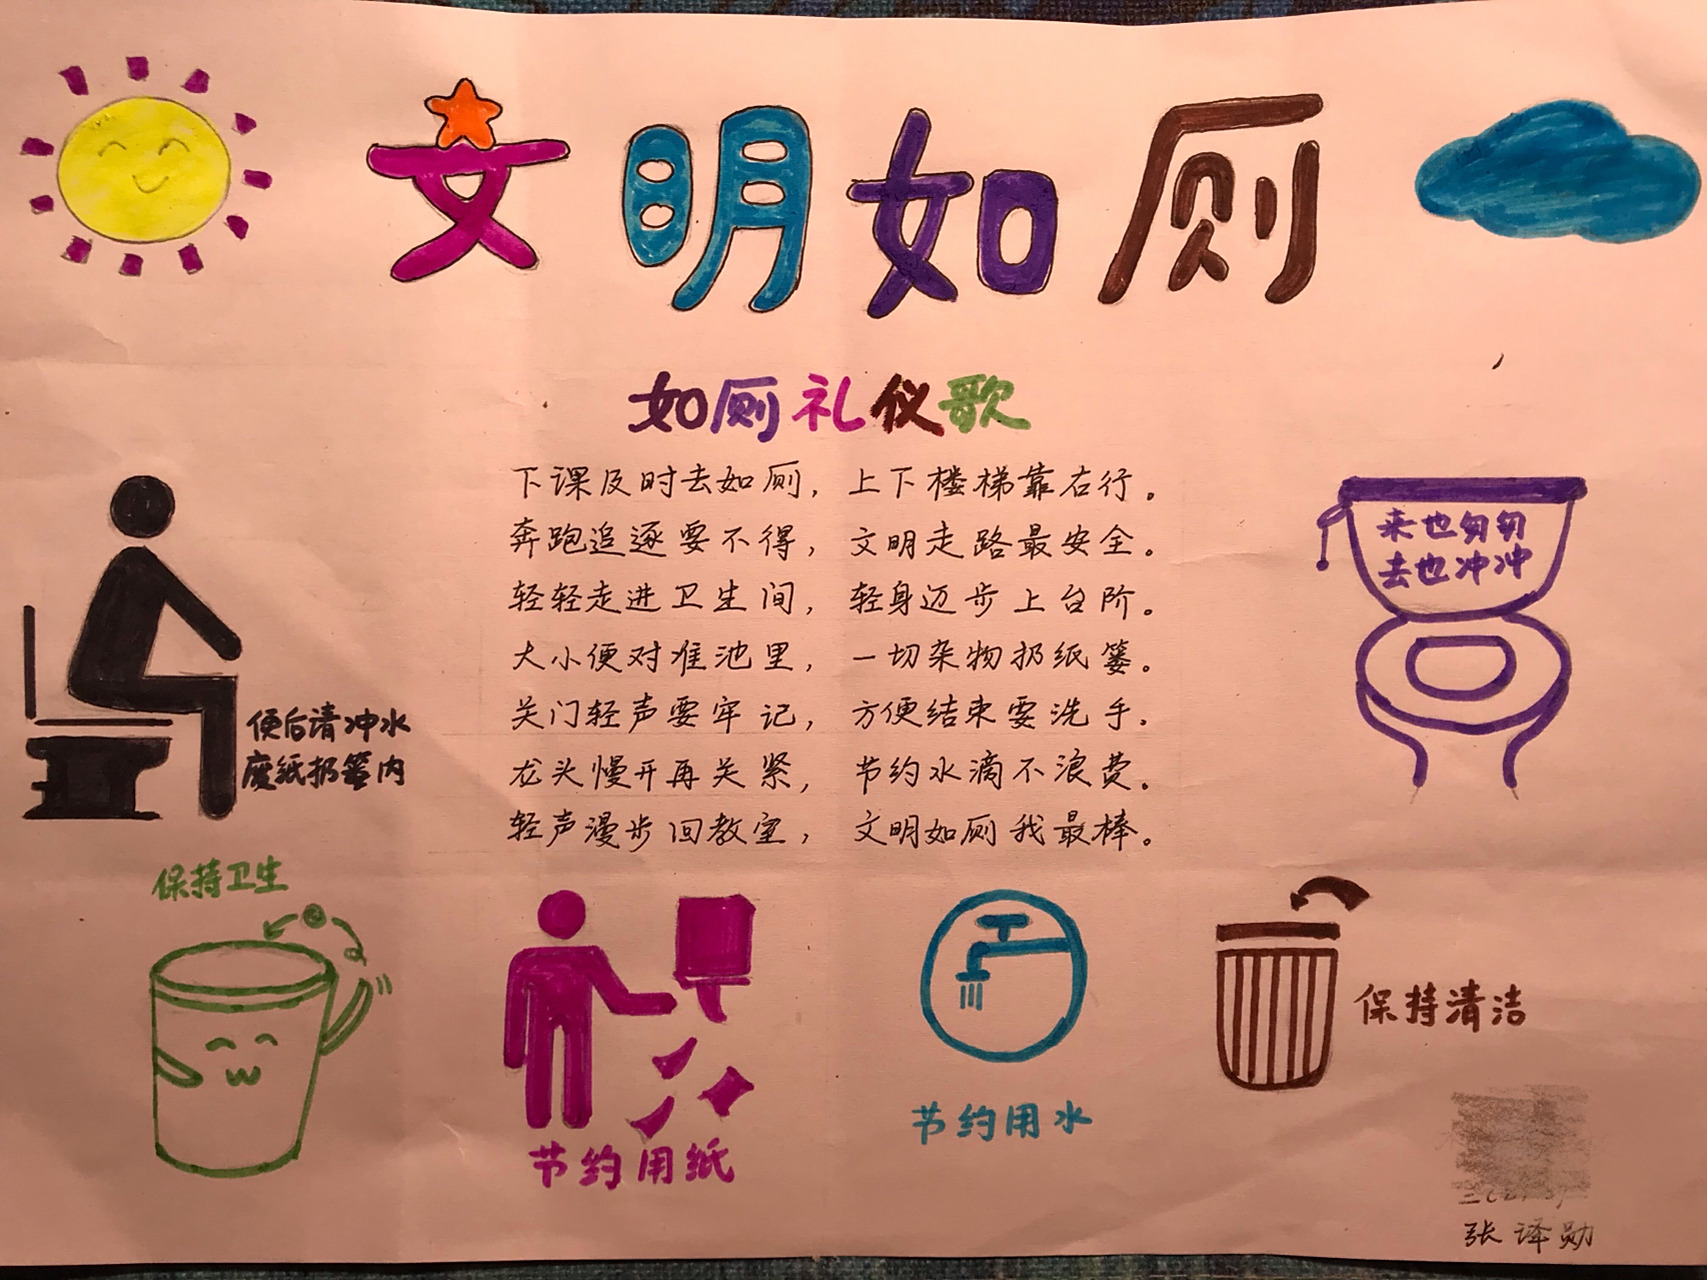 文明如厕
如厕礼仪歌
下课及时去如厕，上下楼梯靠右行。
奔跑追逐要不得，文明走路最安全。
轻轻走进卫生间，轻身迈步上台阶。
大小便对准池里，一切杂物扔纸篓。
关门轻声要牢记，方便结束要洗手。
龙头慢开再关紧，节约水滴不浪费。
轻声漫步回教室，文明如厕我最棒。
来也匆匆
去也冲冲
便后请冲水
废纸扔篓内
保持卫生
节约用纸
节约用水
保持清洁
张译勋